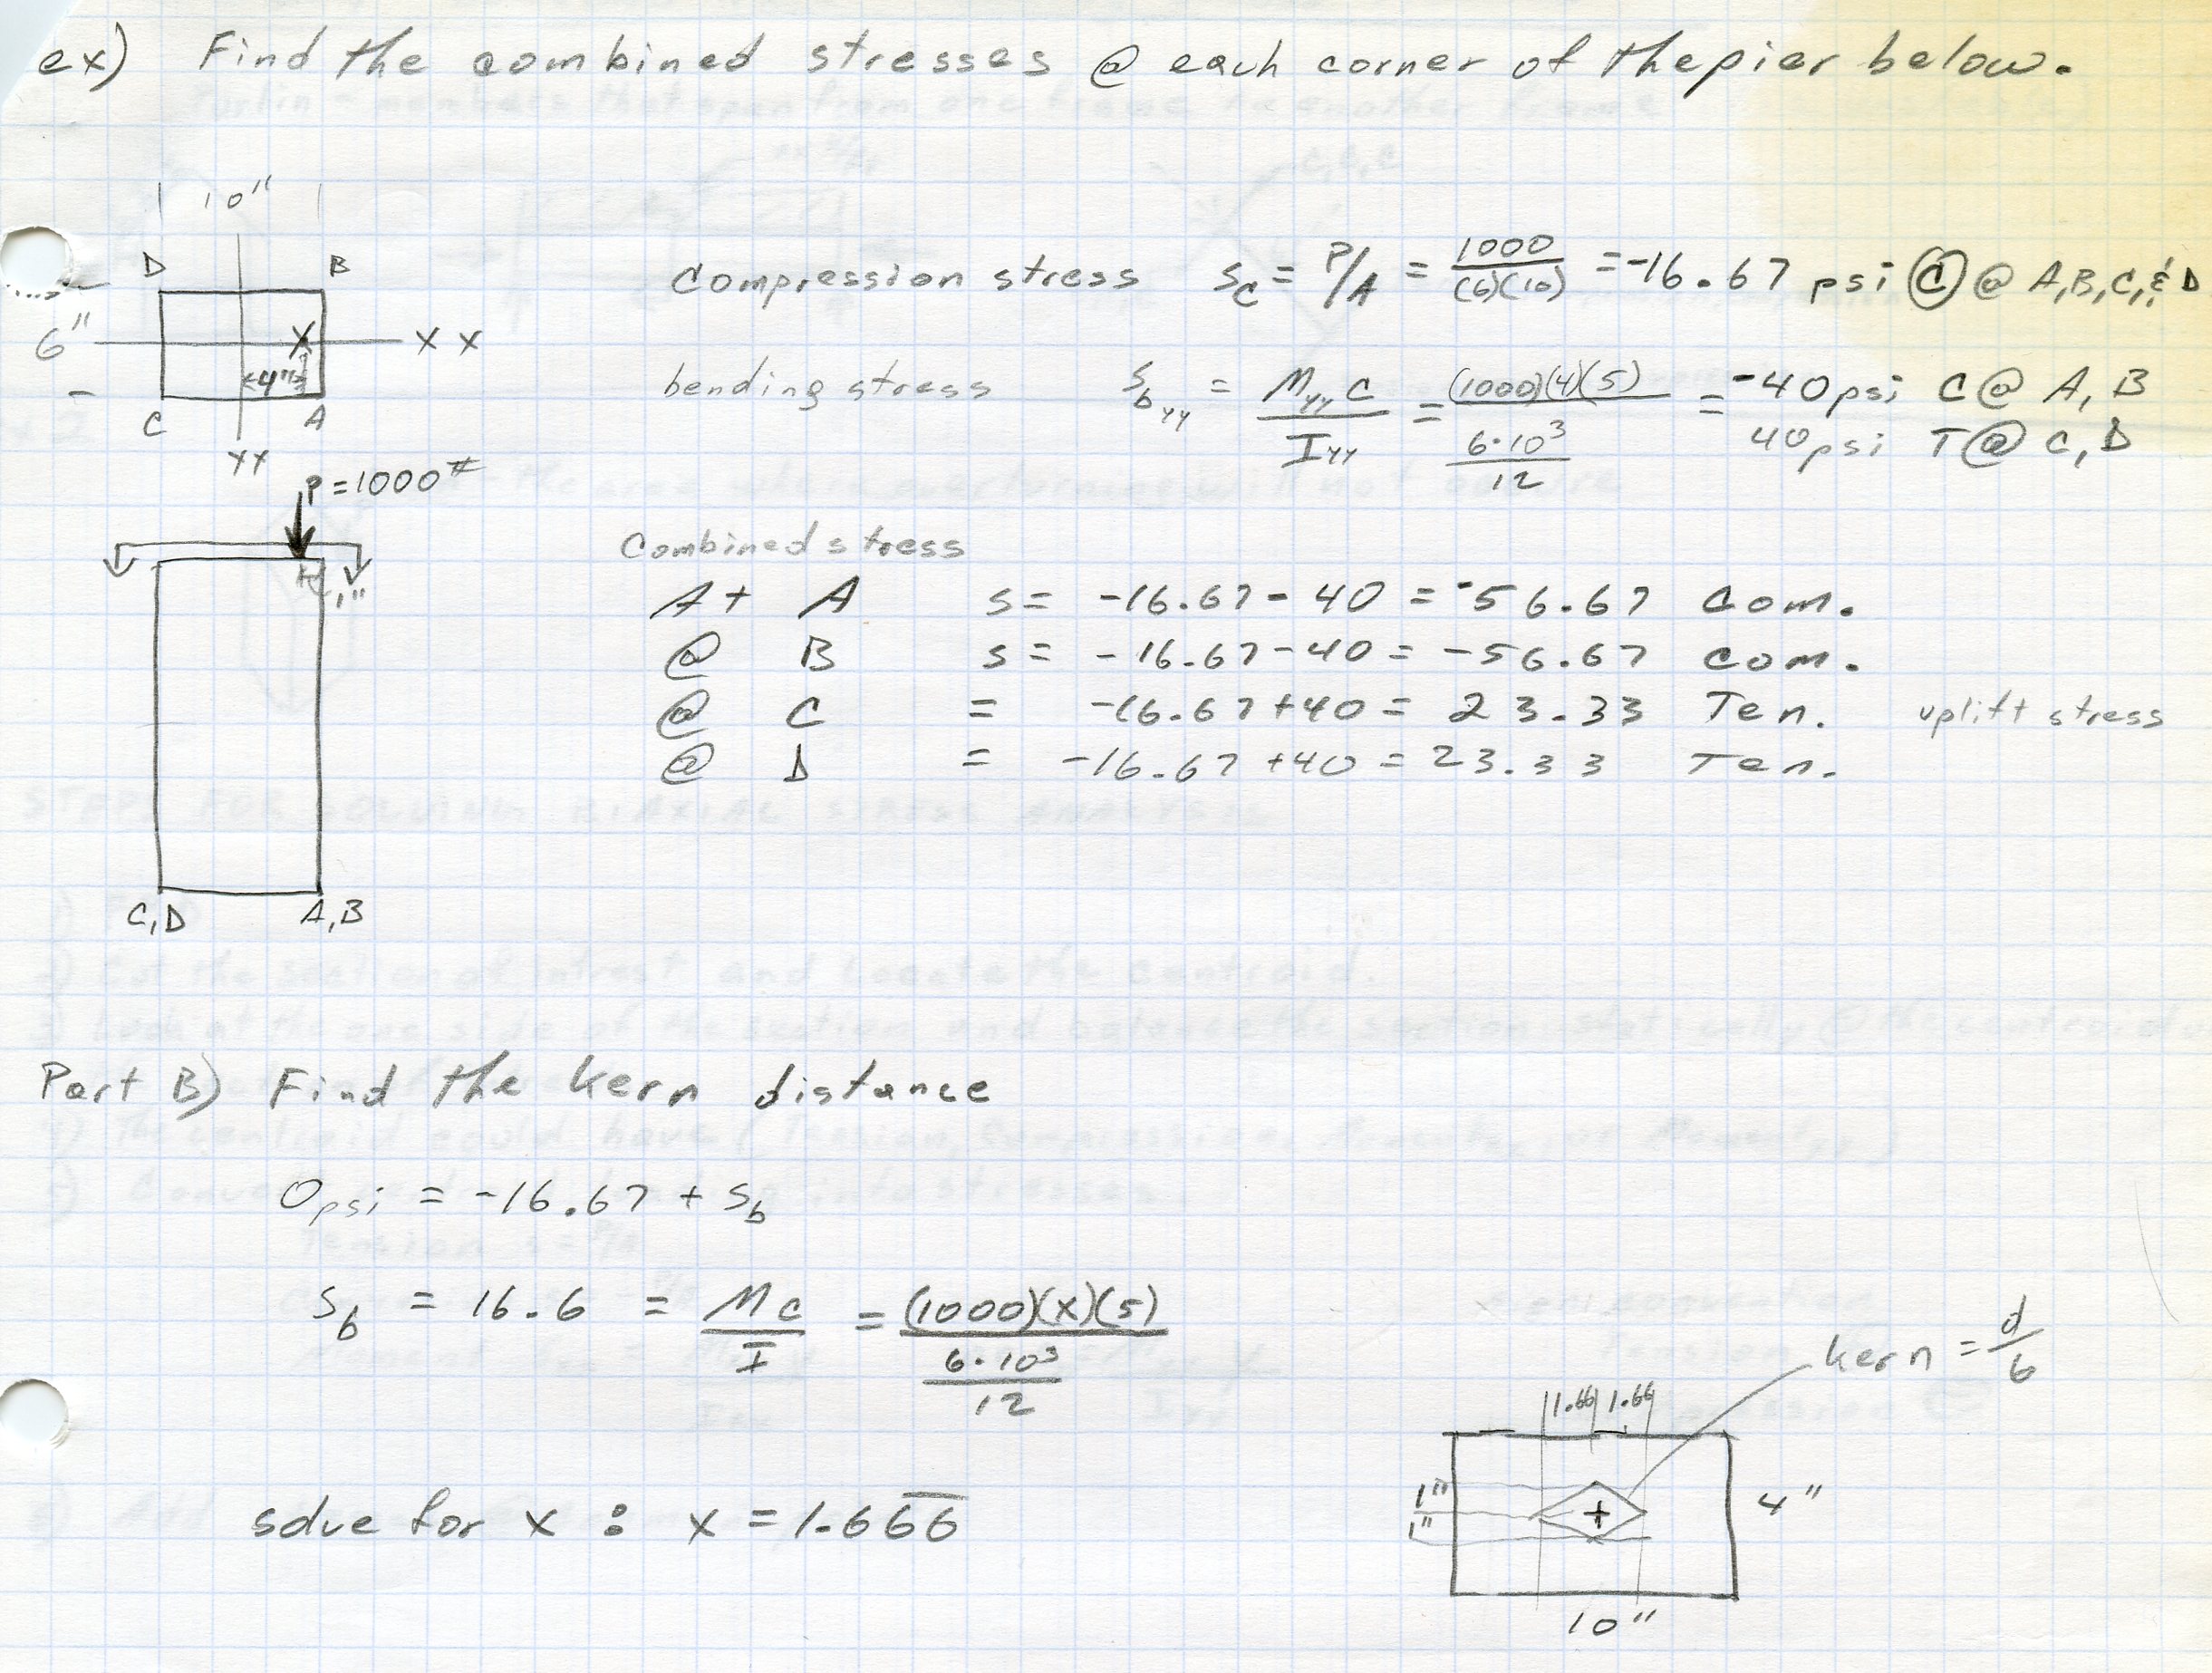 ex) Find the combined stresses @ each corner of the pier below.
10"
D B
6" X X X
4"
C A
YY
P=1000#
1"
C,D A,B
compression stress Sc = P/A = 1000/(6)(10) = -16.67 psi C @ A,B,C,& D
bending stress Sbyy = Myy C/Iyy = (1000)(4)(5)/(6·10³/12) = -40 psi C @ A, B
40 psi T @ C, D
Combined stress
At A s= -16.67 - 40 = -56.67 Com.
@ B s= -16.67-40 = -56.67 Com.
@ C = -16.67+40 = 23.33 Ten. uplift stress
@ D = -16.67 +40 = 23.33 Ten.
Part B) Find the kern distance
0psi = -16.67 + Sb
Sb = 16.6 = Mc/I = (1000)(x)(5)/(6·10³/12)
solve for x : x = 1.666
kern = d/6
1.66 1.66
1"
1"
4"
10"